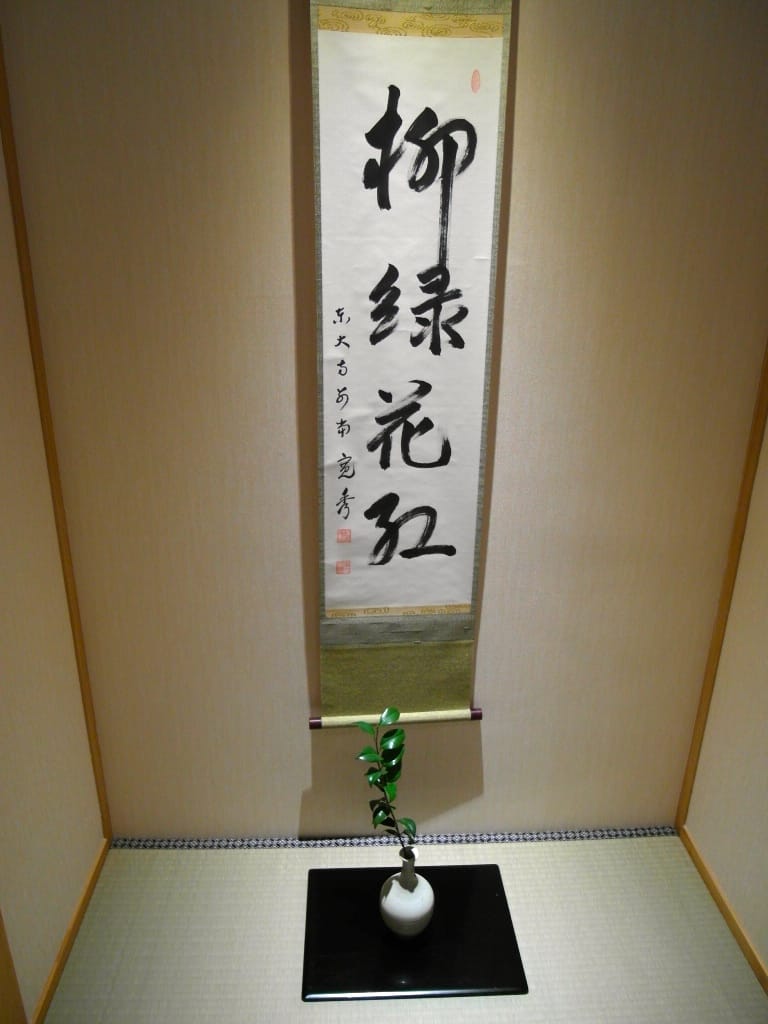 柳緑花紅
東大寺別当寛秀